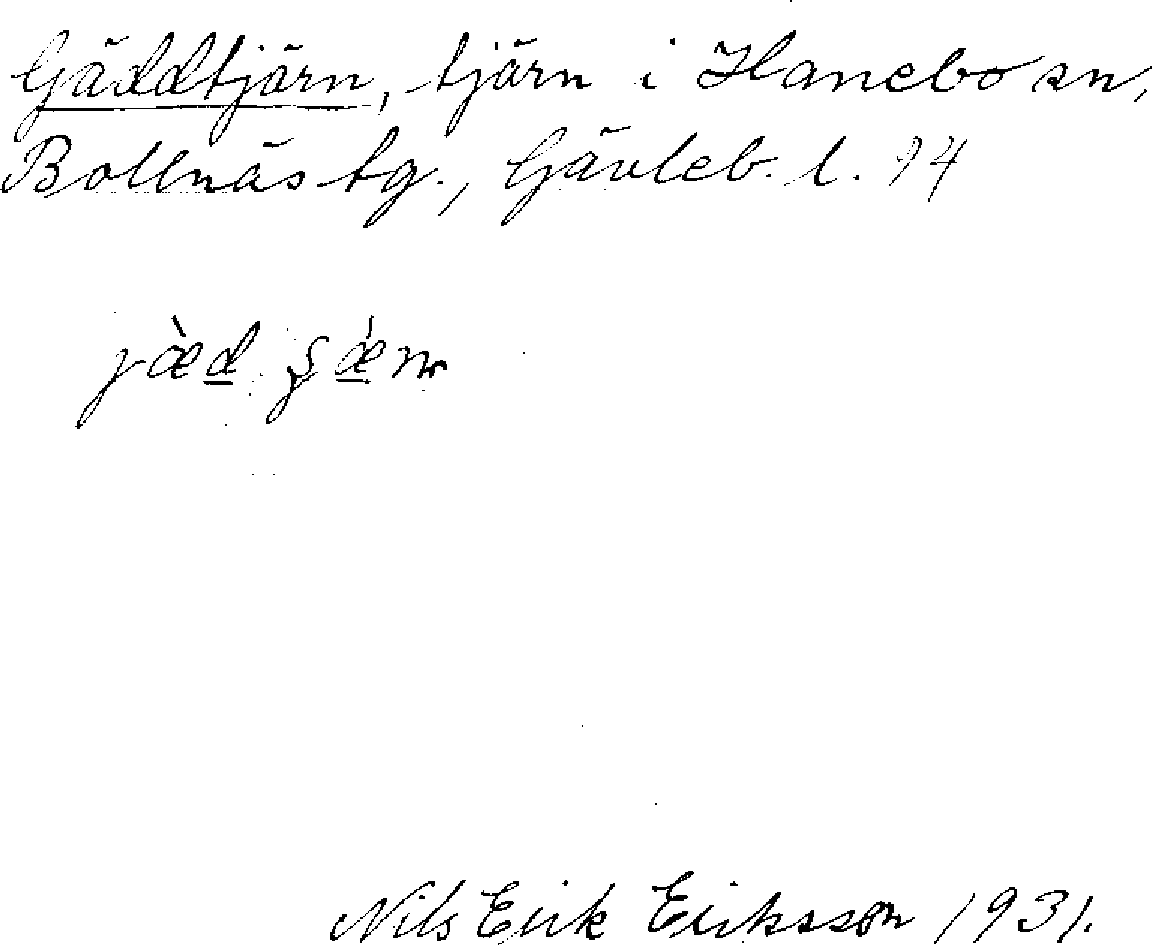 Gäddtjärn, tjärn i Hanebo sn,
Bollnäs tg., Gävleb. l. 94
Nils Erik Eriksson 1931.